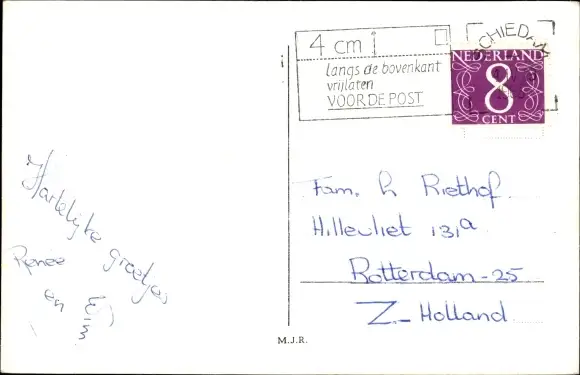 4 cm
langs de bovenkant
vrijlaten
VOOR DE POST
SCHIEDAM
NEDERLAND
8
CENT
Hartelijke groetjes
Renée
en Wim
Fam. h Riethof
Hillevliet 131a
Rotterdam-25
Z.-Holland
M.J.R.